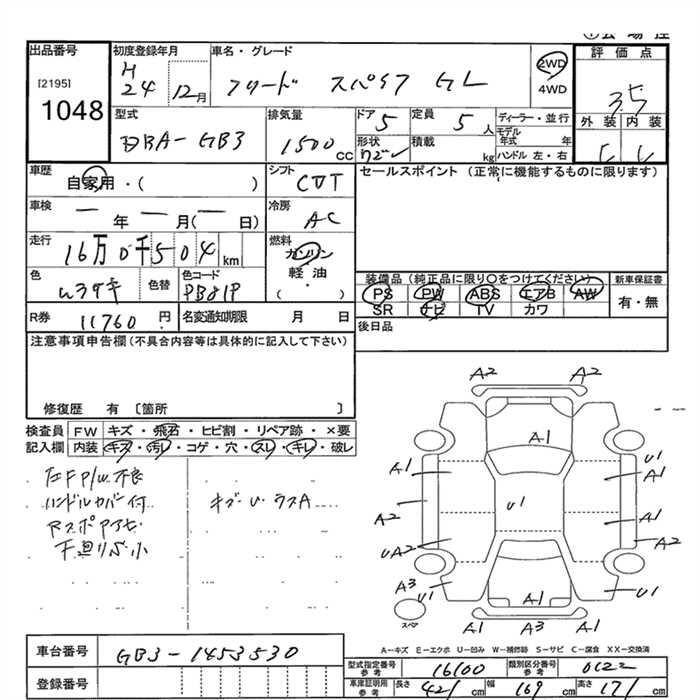 出品番号
[2195]
1048
初度登録年月
H
24 12月
車名・グレード
フリード スパイク GL
2WD
4WD
評価点
3.5
外装 内装
C C
型式
DBA-GB3
排気量
1500 CC
ドア 5
定員 5 人
形状
積載 kg
ディーラー・並行
モデル年式 年
ハンドル 左・右
車歴
自家用・( )
シフト
CVT
セールスポイント (正常に機能するものに限ります)
車検
ー年ー月(ー日)
冷房
AC
走行
16万0千504 km
燃料
ガソリン
軽油
・
( )
色
色替
色コード
PB81P
装備品 (純正品に限り〇をつけてください)
PS PW ABS エアB AW
SR ナビ TV カワ
新車保証書
有・無
R券 11760 円
名変通知期限 月 日
後日品
注意事項申告欄(不具合内容等は具体的に記入して下さい)
修復歴 有 〔箇所 〕
検査員 FW キズ・飛石・ヒビ割・リペア跡・×要
記入欄 内装 キズ・汚レ・コゲ・穴・スレ・キレ・破レ
左F P/W 不良
ハンドルカバー付
キズ・U・ラスA
下廻りS小
A2 A2
A1
A1 A1
U1
A2 A1
UA2 A2
A3 U1 U1
A1
スペア
A1 A3 A1
A-キズ E-エクボ U-凹み W-補修跡 S-サビ C-腐食 XX-交換済
車台番号 GB3-1453530
登録番号
型式指定番号 参考 16100
類別区分番号 参考 0122
車庫証明用 参考 長さ 421 cm 幅 169 cm 高さ 171 cm